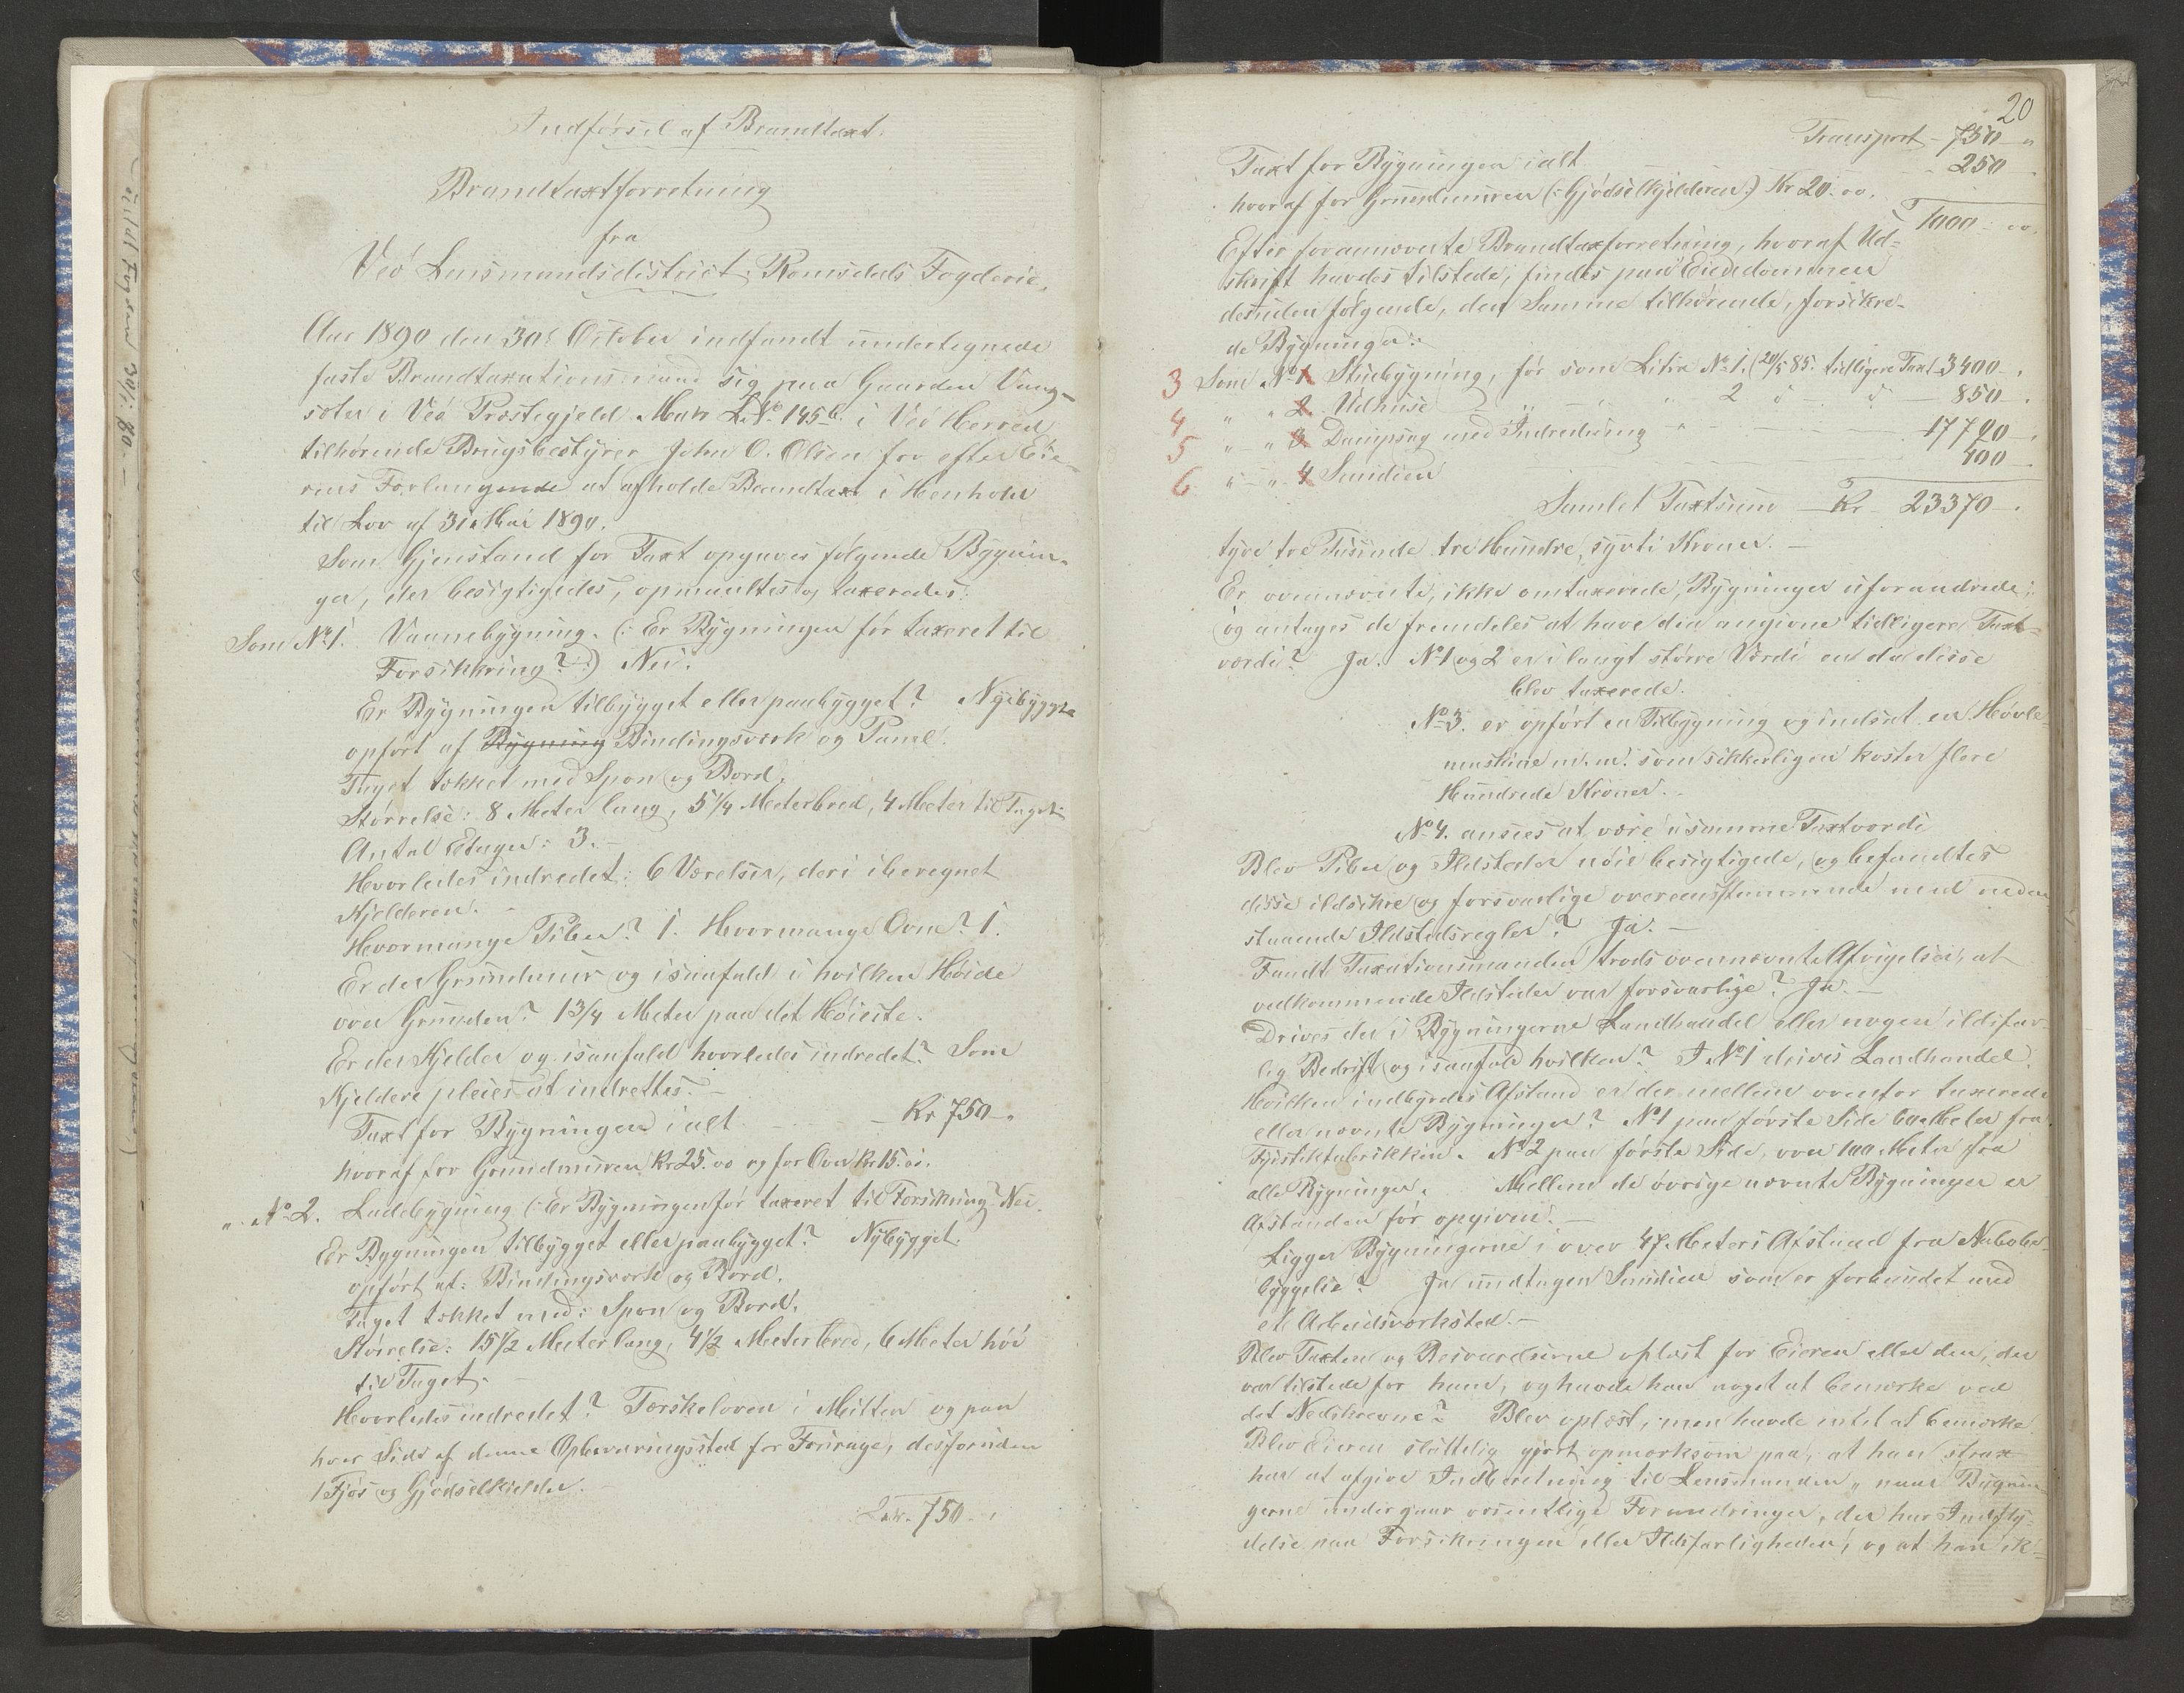 Indførsel af Brandtaxt.
Brandtaxtforretning
fra
Veø Lensmandsdistrict, Romsdals Fogderie.
Aar 1890 den 30. October indfandt undertegnede
faste Brandtaxationsmænd sig paa Gaarden Vang-
sæter i Veø Præstegjeld Matr. L. No 145 b. i Veø Herred
tilhørende Brugsbestyrer John O. Olsen for efter Eie-
rens Forlangende at afholde Brandtaxt i Henhold
til Lov af 31 Mai 1890.
Som Gjenstand for Taxt opgaves følgende Bygnin-
ger, der besigtigedes, opmaaltes og taxeredes:
Som No 1. Vaanebygning. (: Er Bygningen før taxeret til
Forsikkring? :) Nei.
Er Bygningen tilbygget eller paabygget? Nybygget
opført af Bygning Bindingsværk og Panel.
Taget tækket med Spon og Bord.
Størrelse: 8 Meter lang, 5 1/4 Meter bred, 4 Meter til Taget.
Antal Etager: 3.
Hvorledes indredet: 6 Værelser, deri iberegnet
Kjelderen.
Hvormange Piber? 1. Hvormange Ovne? 1.
Er der Grundmur og isaafald i hvilken Høide
over Grunden? 1 3/4 Meter paa det Høieste.
Er der Kjelder og isaafald hvorledes indredet? Som
Kjeldere pleies at indrettes. —
Taxt for Bygningen ialt — Kr 750 —
hvoraf for Grundmuren Kr 25.00 og for Ovn Kr 15.00.
" No 2. Ladebygning (: Er Bygningen før taxeret til Forsikring? Nei.
Er Bygningen tilbygget eller paabygget? Nybygget.
opført af: Bindingsværk og Bord.
Taget tækket med: Spon og Bord.
Størrelse: 15 1/2 Meter lang, 4 1/2 Meter bred, 6 Meter høi
til Taget.
Hvorledes indredet? Tærskeloven i Midten og paa
hver Side af denne Opbevaringssted for Fourage, desforuden
1 Fjøs og Gjødselkjelder.
750
20
Transport — 750 — "
Taxt for Bygningen ialt — 250
hvoraf for Grundmuren (: Gjødselkjelderen :) Kr 20.00.
1000 00
Efter forannævnte Brandtaxforretning, hvoraf Ud-
skrift havdes tilstede, findes paa Eiendommen
desuden følgende, den Samme tilhørende, forsikre-
de Bygninger:
3 Som No 1 Stuebygning, før som Litra No 1. (20/5 85. tidligere Taxt 3400
4 " " 2 Udhuse — " — " 2 850
5 " " 3 Dampsag med Indredning 17720
6 " " 4 Smidien 400
Samlet Taxtsum — Kr 23370
tyve tre Tusinde tre Hundre, sytti Kroner. —
Er ovennævnte, ikke omtaxerede, Bygninger uforandrede,
og antages de fremdeles at have den angivne tidligere Taxt-
værdi? Ja. No 1 og 2 er i langt større Værdi en da disse
blev taxerede.
No 3. er opført en Tilbygning og indsat en Høvle-
maskine m.m. som sikkerligen koster flere
Hundrede Kroner.
No 4. ansees at være i samme Taxtværdi
Blev Piber og Ildsteder nøie besigtigede, og befandtes
disse ildsikre og forsvarlige overensstemmende med neden-
staaende Ildstedsregler? Ja. —
Fandt Taxationsmanden trods ovennævnte Afvigelser, at
vedkommende Ildsteder var forsvarlige? Ja. —
Drives der i Bygningerne Landhandel eller nogen ildsfar-
lig Bedrift og isaafald hvilken? I No 1 drives Landhandel.
Hvilken indbyrdes Afstand er der mellem ovenfor taxerede
eller nævnte Bygninger? No 1 paa første Side 60 Meter fra
No 2 paa første Side, over 100 Meter fra
alle Bygninger. Mellem de øvrige nævnte Bygninger er
Afstanden før opgiven. —
Ligger Bygningerne i over 47 Meters Afstand fra Nabobe-
byggelse? Ja undtagen Smidien som er forbundet med
et Arbeidsværksted. —
Blev Taxten og Besvarelserne oplæst for Eieren eller den, der
var tilstede for ham, og havde han noget at bemærke ved
det Nedskrevne? Blev oplæst, men havde intet at bemærke.
Blev Eieren sluttelig gjort opmærksom paa, at han strax
har at afgive Indberetning til Lensmanden, naar Bygnin-
gerne undergaar væsentlige Forandringer, der har Indfly-
delse paa Forsikringen eller Ildsfarligheden, og at han ik-